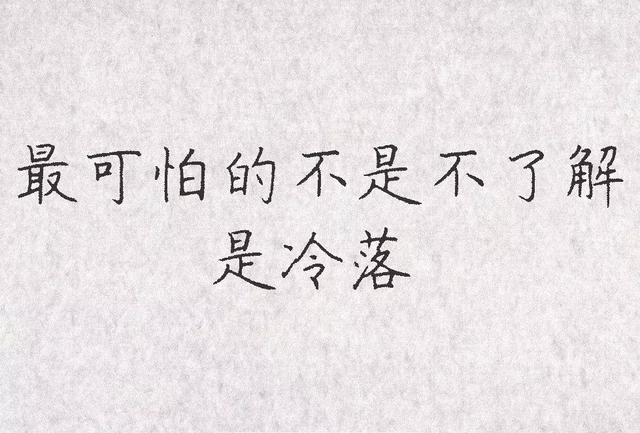 最可怕的不是不了解
是冷落